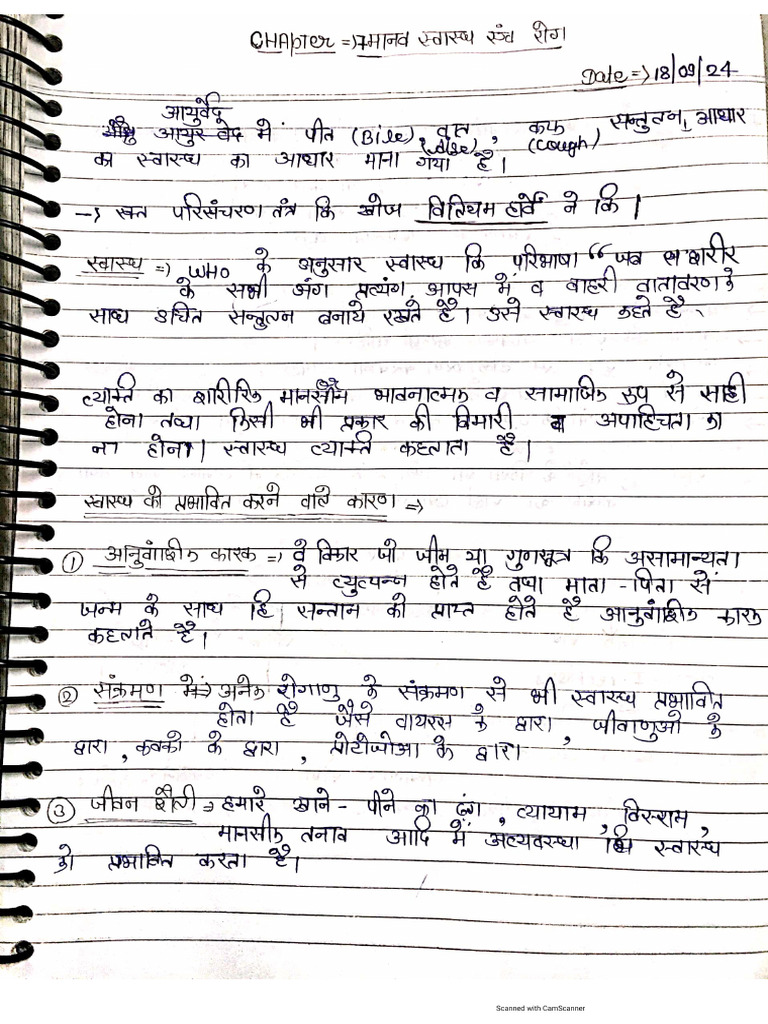 CHApter =>7मानव स्वास्थ एंव रोग
Date=>18/09/24
आयुर्वेद
आयुर वेद में पीत (Bile), वात, कफ सन्तुतन, आधार
(cough)
को स्वास्थ का आधार माना गया है।
-> रक्त परिसंचरण तंत्र कि खोज विलियम हार्वे ने कि।
स्वास्थ => WHO के अनुसार स्वास्थ कि परिभाषा “जब शरीर
के सभी अंग प्रत्यंग आपस में व वाहरी वातावरण के
साथ उचित सन्तुतन बनाये रखते है। उसे स्वास्थ कहते है
व्यक्ति का शारीरिक मानसीक भावनात्मक व सामाजिक रूप से साही
होना तथा किसी भी प्रकार की विमारी अपाहिचता का
ना होना। स्वास्थ व्यक्ति कहलाता है।
स्वास्थ को प्रभावित करने वाले कारण =>
① आनुवांशीक कारक => वे विकार जो जीन या गुणसूत्र कि असामान्यता
से व्युत्पन्न होते है तथा माता - पिता से
जन्म के साथ हि सन्तान को प्राप्त होते है आनुवांशीक कारक
कहलाते है।
② संक्रमण => अनेक रोगाणु के संक्रमण से भी स्वास्थ प्रभावित
होता है जैसे वायरस के द्वारा, जीवाणुओ के
द्वारा, कवको के द्वारा, प्रोटोजोआ के द्वारा
③ जीवन शैली => हमारे खाने - पीने का ढंग, व्यायाम, विस्राम,
मानसीक तनाव आदि में अव्यवस्था भि स्वास्थ
को प्रभावित करता है।
Scanned with CamScanner